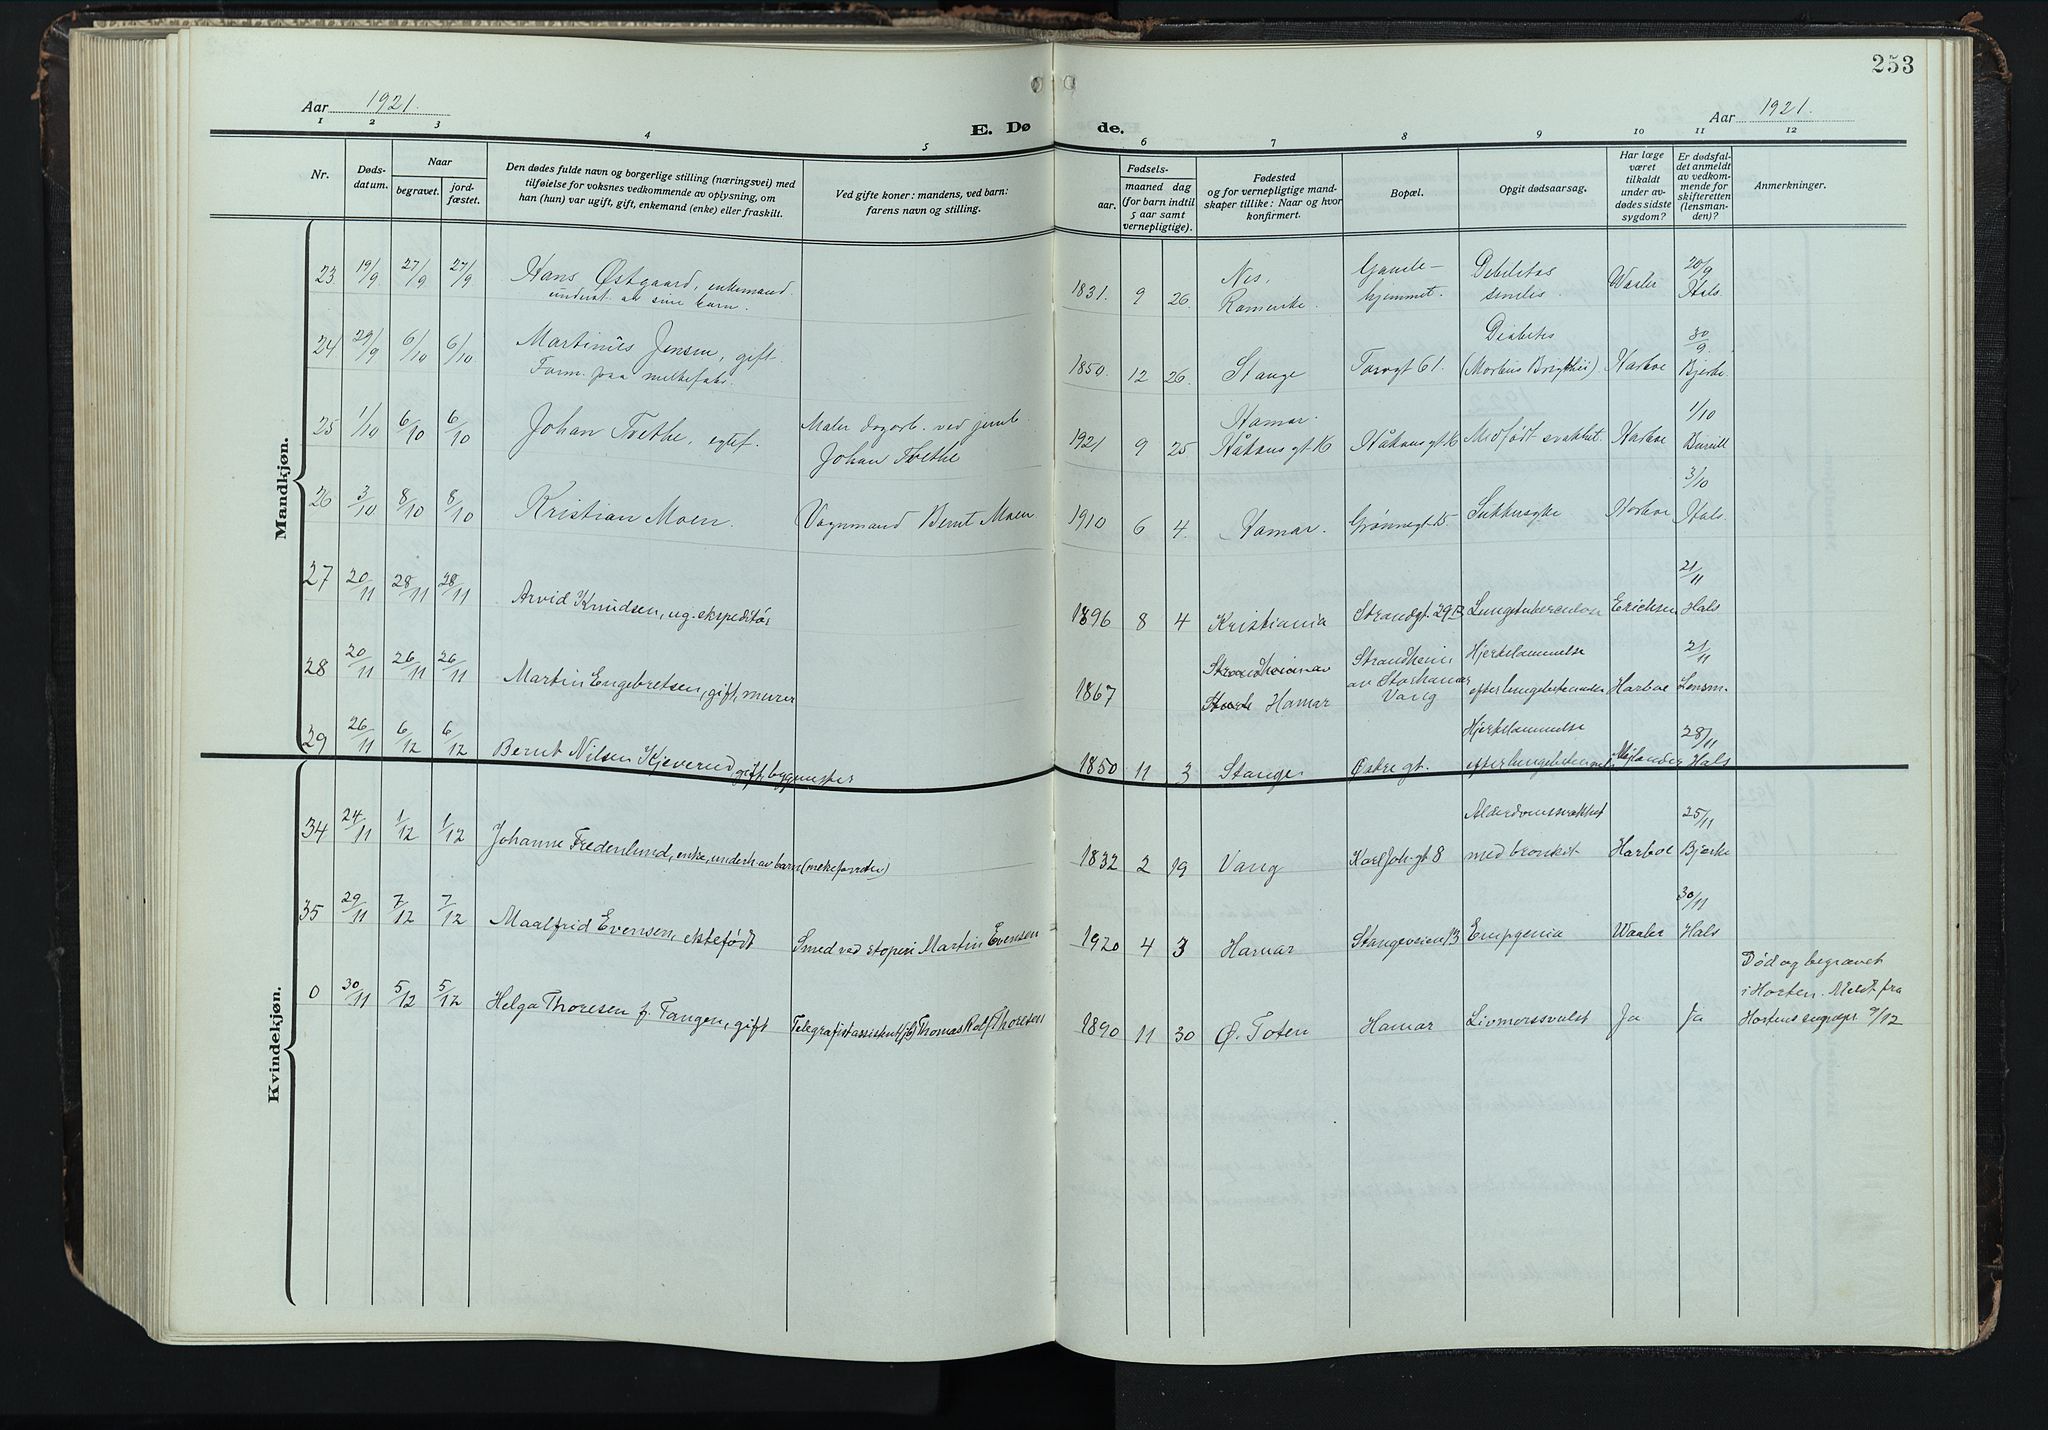 253
Aar 1921.
Aar 1921.
E. Døde.
1 2 3 4 5 6 7 8 9 10 11 12
Nr.
Døds-
datum.
Naar
begravet.
jord-
fæstet.
Den dødes fulde navn og borgerlige stilling (næringsvei) med
tilføielse for voksnes vedkommende av oplysning, om
han (hun) var ugift, gift, enkemand (enke) eller fraskilt.
Ved gifte koner: mandens, ved barn:
farens navn og stilling.
Fødsels-
aar.
maaned dag
(for barn indtil
5 aar samt
vernepligtige).
Fødested
og for vernepligtige mand-
skaper tillike: Naar og hvor
konfirmert.
Bopæl.
Opgit dødsaarsag.
Har læge
været
tilkaldt
under av-
dødes sidste
sygdom?
Er dødsfal-
det anmeldt
av vedkom-
mende for
skifteretten
(lensman-
den)?
Anmerkninger.
Mandkjøn.
23 19/9 27/9 27/9 Hans Østgaard, enkemand.
underst. av sine barn.
1831. 9 26. Nes,
Gamle-
hjemmet.
Debilitas
senilis. Waaler 20/9
Hals.
24 29/9 6/10 6/10 Martinus Jensen, gift.
Form. paa melkefabr.
1850. 12 26. Stange Torvgt 61. Diabetes
(Morbus Brigthii) Harboe 30/9.
Bjerke
25 1/10 6/10 6/10 Johan Trethe, egtef. Maler dagarb. ved jernb.
Johan Trethe
1921 9 25 Hamar
Håkons gt. 16 Håkons gt. 16 Medfødt svakhet. Harboe 1/10
26 3/10 8/10 8/10 Kristian Moen. Vognmand Bernt Moen
1910 6 4. Hamar. Grønnegt. 15 Sukkersyke Harboe 3/10
Hals.
27 20/11 28/11 28/11 Arvid Knudsen, ug. ekspeditør
1896 8 4 Kristiania Strandgt. 29B Lungetuberculose Erichsen 21/11
Hals
28 20/11 26/11 26/11 Martin Engebretsen, gift, murer
1867 Hamar Strandheim
av Storhamar
Vang Hjertelammelse
efter lungebetændelse Harboe 21/11
Lensm.
29 26/11 6/12 6/12 Bernt Nilsen Kjeverud gift, bygmester
1850 11 3 Stange Østregt. Hjertelammelse
efter lungebetændelse Mejlænder 28/11
Hals
Kvindekjøn.
34 24/11 1/12 1/12 Johanne Fredenlund, enke, underh. av barn
1832 2 19 Vang Karl Joh-gt 8 Alderdomssvakhet
med bronkit Harboe 25/11
Bjerke
35 29/11 7/12 7/12 Maalfrid Evensen, ektefødt Smed ved støperi Martin Evensen
1920 4 3 Hamar Stangeveien 13 Empyenia Waaler 30/11
Hals
0 30/11 5/12 5/12 Helga Thoresen f. Tangen, gift Telegrafistassistent Thomas Rolf Thoresen
1890 11 30 Ø. Toten Hamar Livmorssvulst Ja Ja
Død og begravet
i Horten. Meldt fra
Hortens sognepr. 9/12